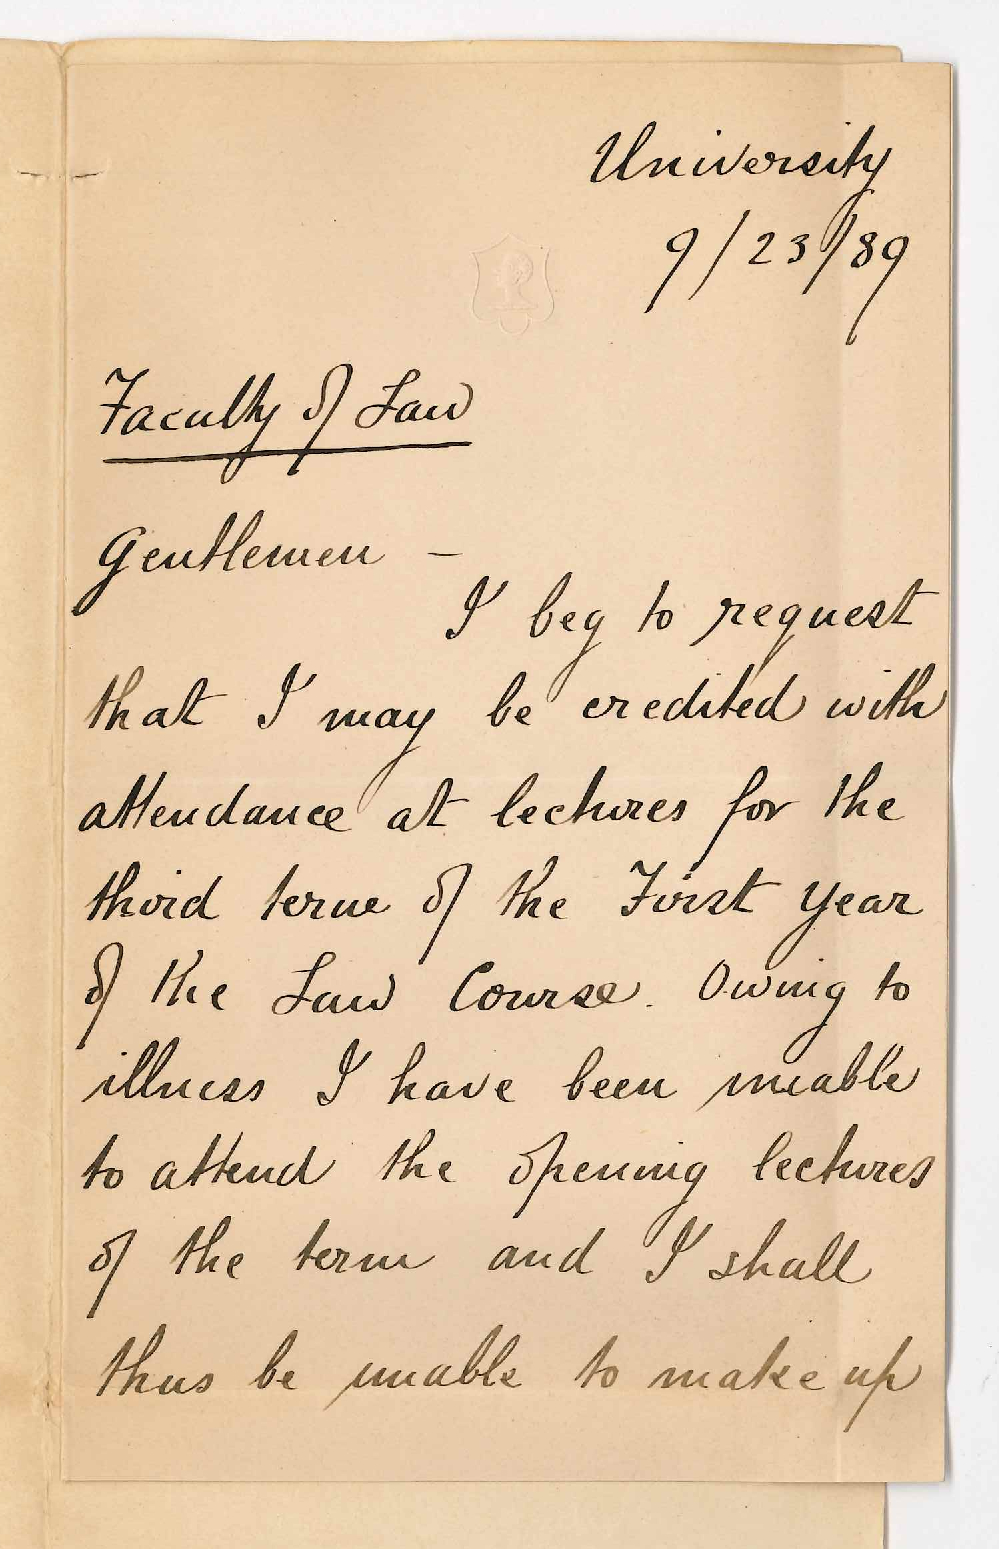 University
9/23/89
Faculty of Law
Gentlemen –
I beg to request
that I may be credited with
attendance at lectures for the
third term of the First Year
of the Law Course. Owing to
illness I have been unable
to attend the opening lectures
of the term and I shall
thus be unable to make up